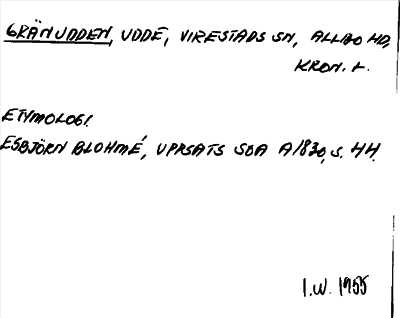 GRÄNUDDEN, UDDE, VIRESTADS SN, ALLBO HD,
KRON. L.
ETYMOLOGI.
ESBJÖRN BLOHMÉ, UPPSATS SOA A1830, S. 44.
I.W. 1955